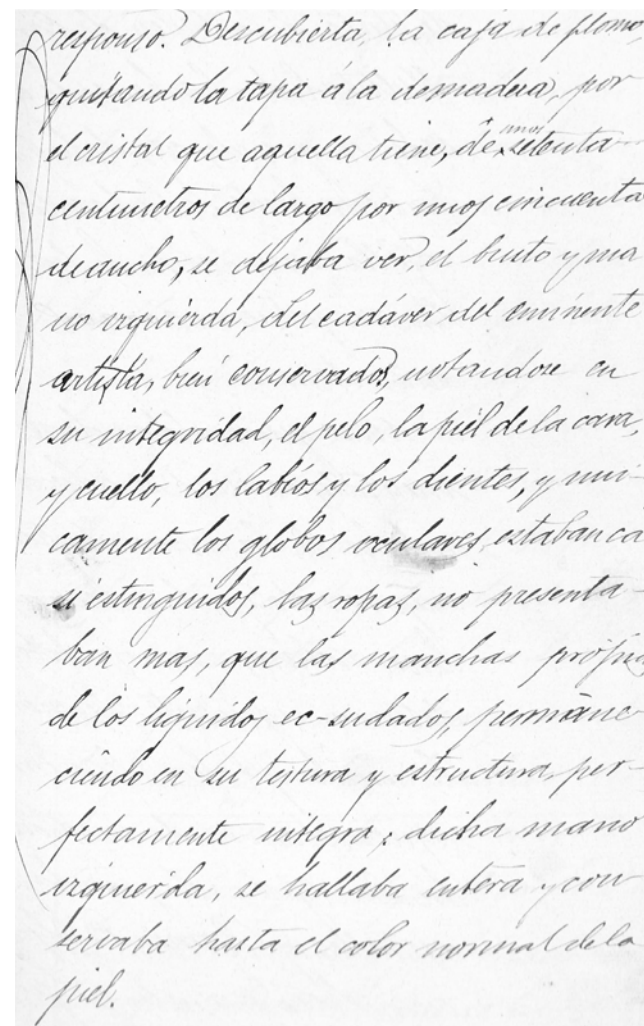 responso. Descubierta, la caja de plomo,
quitando la tapa á la de madera, por
el cristal que aquella tiene, de unos setenta
centimetros de largo por unos cincuenta
de ancho, se dejaba ver, el busto y ma
no izquierda, del cadáver del eminente
artista, bien conservados, notandose en
su integridad, el pelo, la piel de la cara,
y cuello, los labios y los dientes, y uni-
camente los globos oculares, estaban ca
si estinguidos, las ropas, no presenta-
ban mas, que las manchas propias
de los liquidos ec-sudados, permane-
ciendo en su testura y estructura, per-
fectamente integra; dicha mano
izquierda, se hallaba entera y con
servaba hasta el color normal de la
piel.